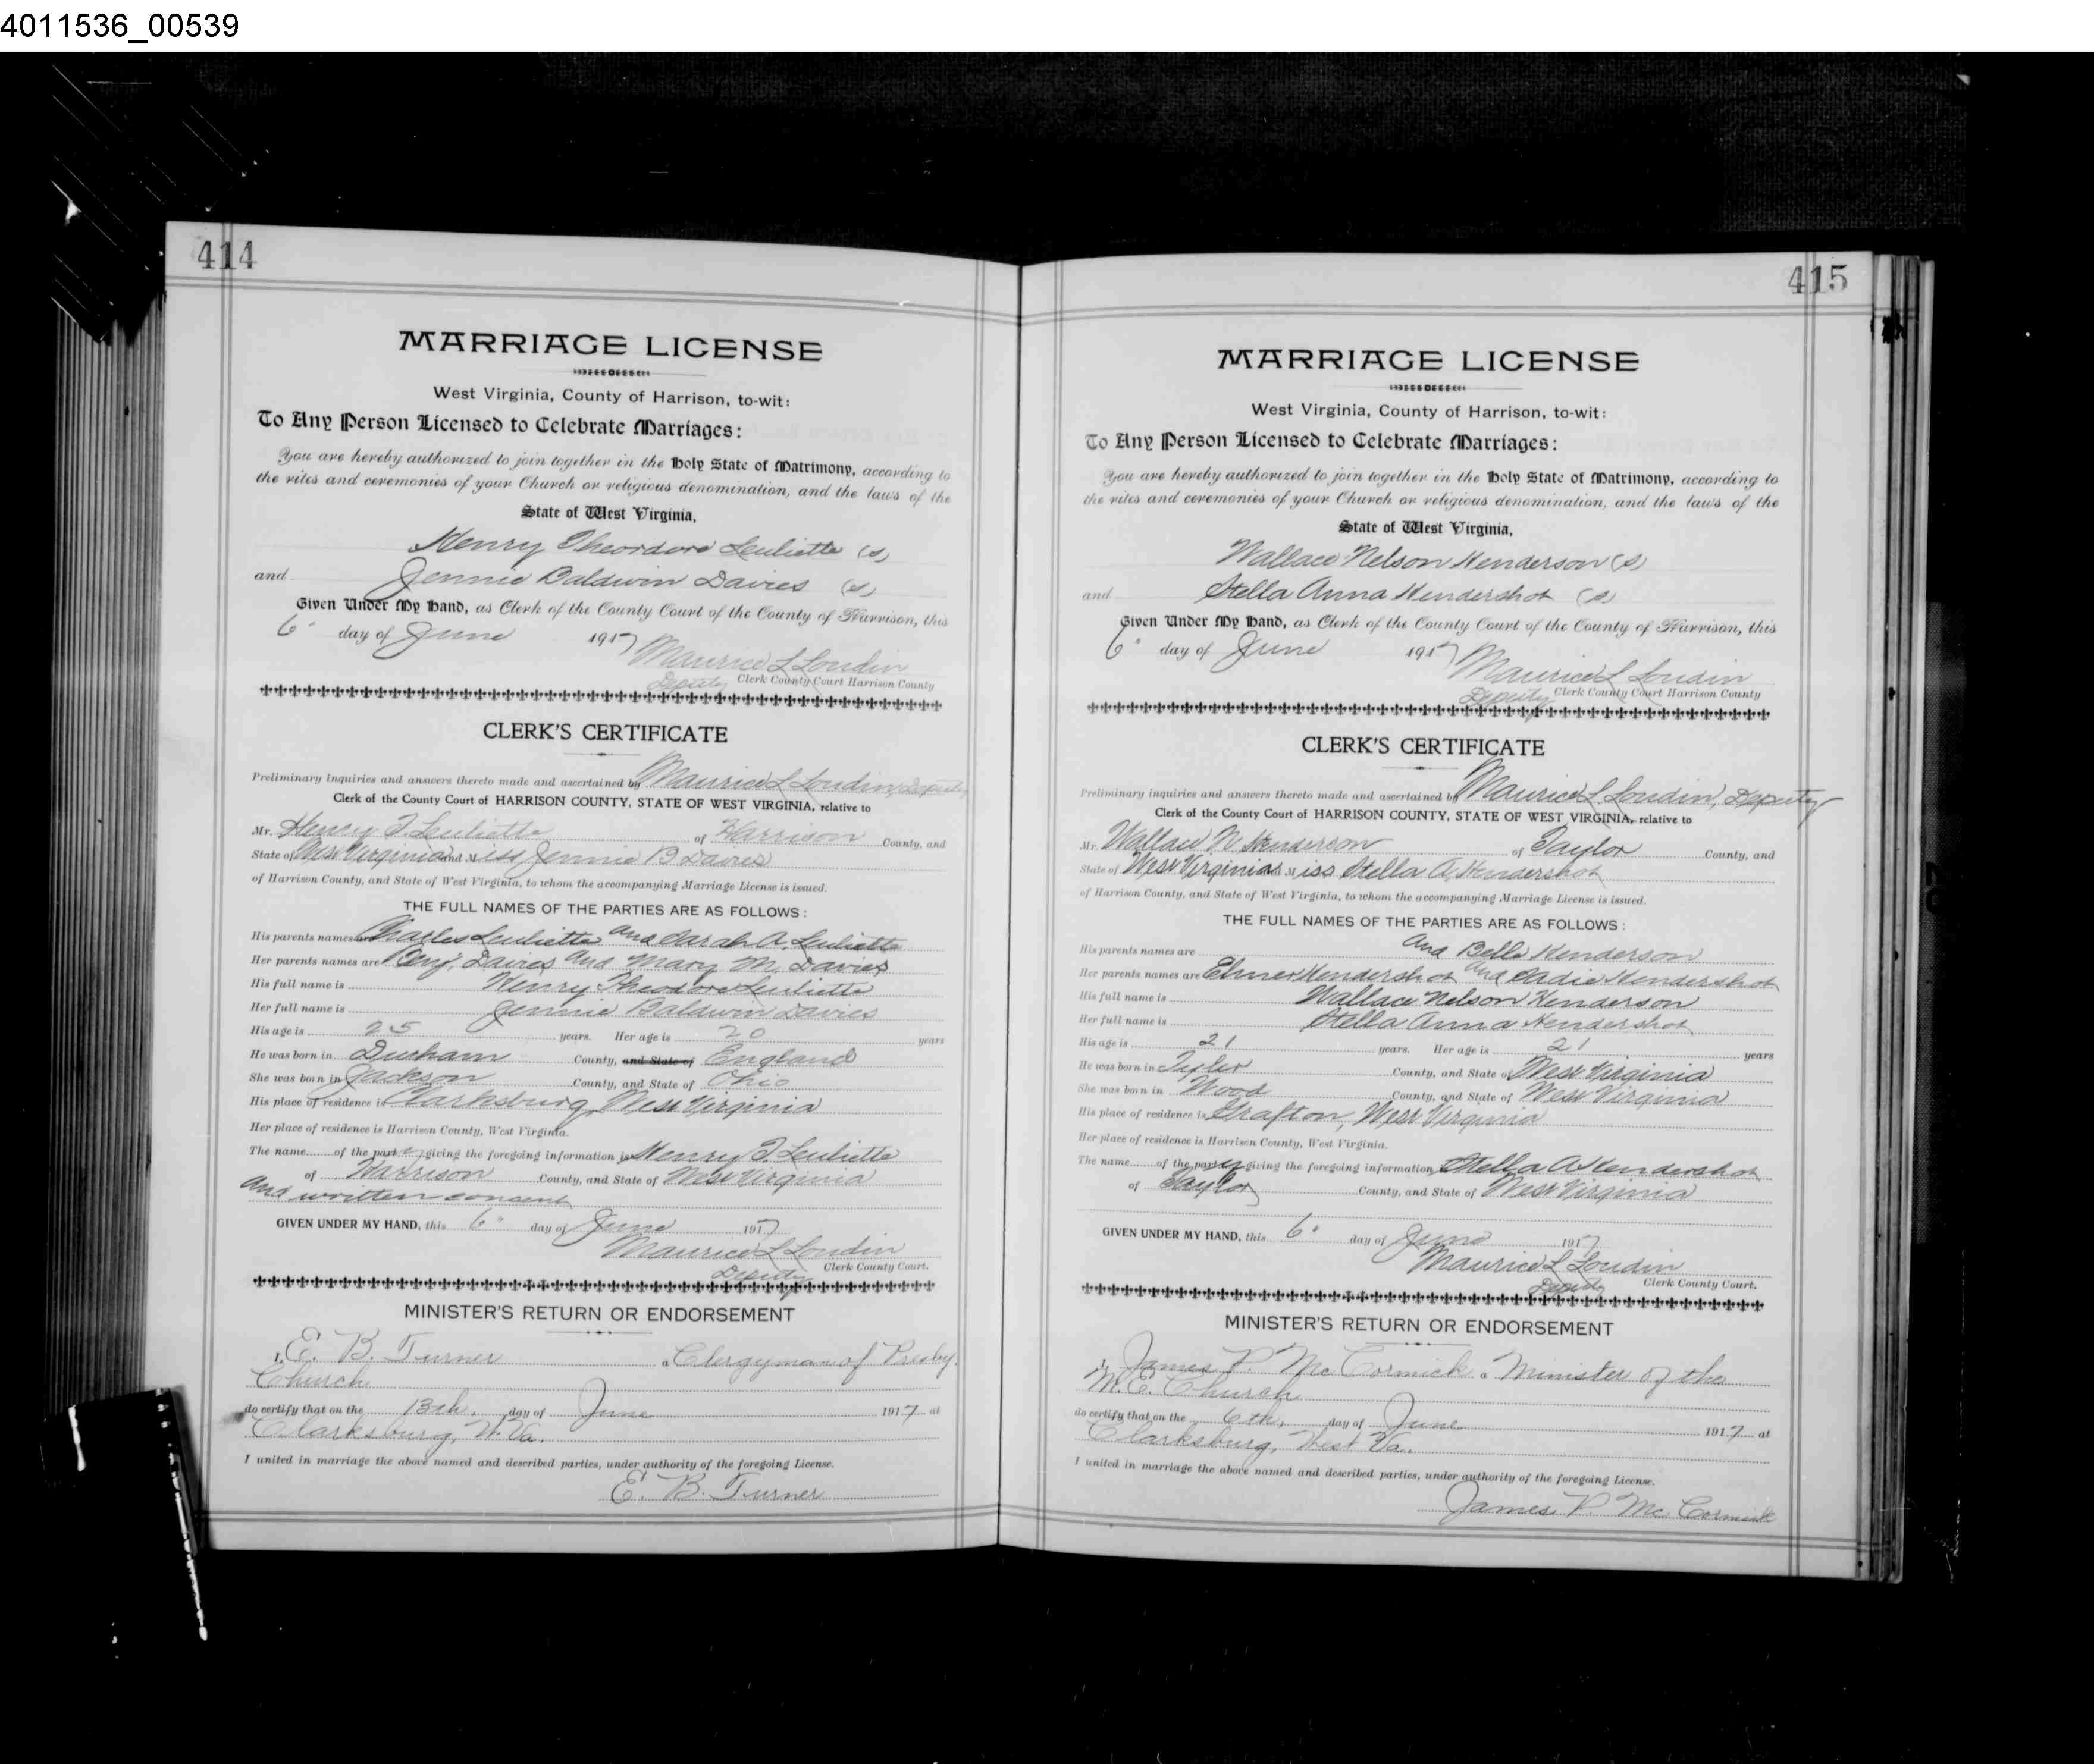 4011536_00539
414
MARRIAGE LICENSE
West Virginia, County of Harrison, to-wit:
To Any Person Licensed to Celebrate Marriages:
You are hereby authorized to join together in the Holy State of Matrimony, according to
the rites and ceremonies of your Church or religious denomination, and the laws of the
State of West Virginia,
Henry Theodore Leuliette (s)
and Jennie Baldwin Davies (s)
Given Under My Hand, as Clerk of the County Court of the County of Harrison, this
6" day of June 1917
Maurice L Loudin
Deputy Clerk County Court Harrison County
CLERK'S CERTIFICATE
Preliminary inquiries and answers thereto made and ascertained by Maurice L Loudin, Deputy
Clerk of the County Court of HARRISON COUNTY, STATE OF WEST VIRGINIA, relative to
Mr. Henry T. Leuliette of Harrison County, and
State of West Virginia and Miss Jennie B Davies
of Harrison County, and State of West Virginia, to whom the accompanying Marriage License is issued.
THE FULL NAMES OF THE PARTIES ARE AS FOLLOWS:
His parents names are Charles Leuliette and Sarah A. Leuliette
Her parents names are Benj. Davies and Mary M. Davies
His full name is Henry Theodore Leuliette
Her full name is Jennie Baldwin Davies
His age is 25 years. Her age is 20 years
He was born in Durham County, and State of England
She was born in Jackson County, and State of Ohio
His place of residence is Clarksburg, West Virginia
Her place of residence is Harrison County, West Virginia.
The name of the party giving the foregoing information is Henry T. Leuliette
of Harrison County, and State of West Virginia
and written consent
GIVEN UNDER MY HAND, this 6" day of June 1917
Maurice L Loudin
Deputy Clerk County Court.
MINISTER'S RETURN OR ENDORSEMENT
I, E. B. Turner a Clergyman of Presby.
Church
do certify that on the 13th. day of June 1917 at
Clarksburg, W. Va.
I united in marriage the above named and described parties, under authority of the foregoing License.
E. B. Turner
415
MARRIAGE LICENSE
West Virginia, County of Harrison, to-wit:
To Any Person Licensed to Celebrate Marriages:
You are hereby authorized to join together in the Holy State of Matrimony, according to
the rites and ceremonies of your Church or religious denomination, and the laws of the
State of West Virginia,
Wallace Nelson Henderson (s)
and Stella Anna Hendershot (s)
Given Under My Hand, as Clerk of the County Court of the County of Harrison, this
6" day of June 1917
Maurice L Loudin
Deputy Clerk County Court Harrison County
CLERK'S CERTIFICATE
Preliminary inquiries and answers thereto made and ascertained by Maurice L. Loudin, Deputy
Clerk of the County Court of HARRISON COUNTY, STATE OF WEST VIRGINIA, relative to
Mr. Wallace N Henderson of Taylor County, and
State of West Virginia and Miss Stella A. Hendershot
of Harrison County, and State of West Virginia, to whom the accompanying Marriage License is issued.
THE FULL NAMES OF THE PARTIES ARE AS FOLLOWS:
His parents names are and Belle Henderson
Her parents names are Elmer Hendershot and Sadie Hendershot
His full name is Wallace Nelson Henderson
Her full name is Stella Anna Hendershot
His age is 21 years. Her age is 21 years
He was born in Tyler County, and State of West Virginia
She was born in Wood County, and State of West Virginia
His place of residence is Grafton, West Virginia
Her place of residence is Harrison County, West Virginia.
The name of the party giving the foregoing information Stella A Hendershot
of Taylor County, and State of West Virginia
GIVEN UNDER MY HAND, this 6" day of June 1917
Maurice L Loudin
Deputy Clerk County Court.
MINISTER'S RETURN OR ENDORSEMENT
I, James P. McCormick a Minister of the
M.E. Church
do certify that on the 6th, day of June 1917 at
Clarksburg, West Va.
I united in marriage the above named and described parties, under authority of the foregoing License.
James P. McCormick